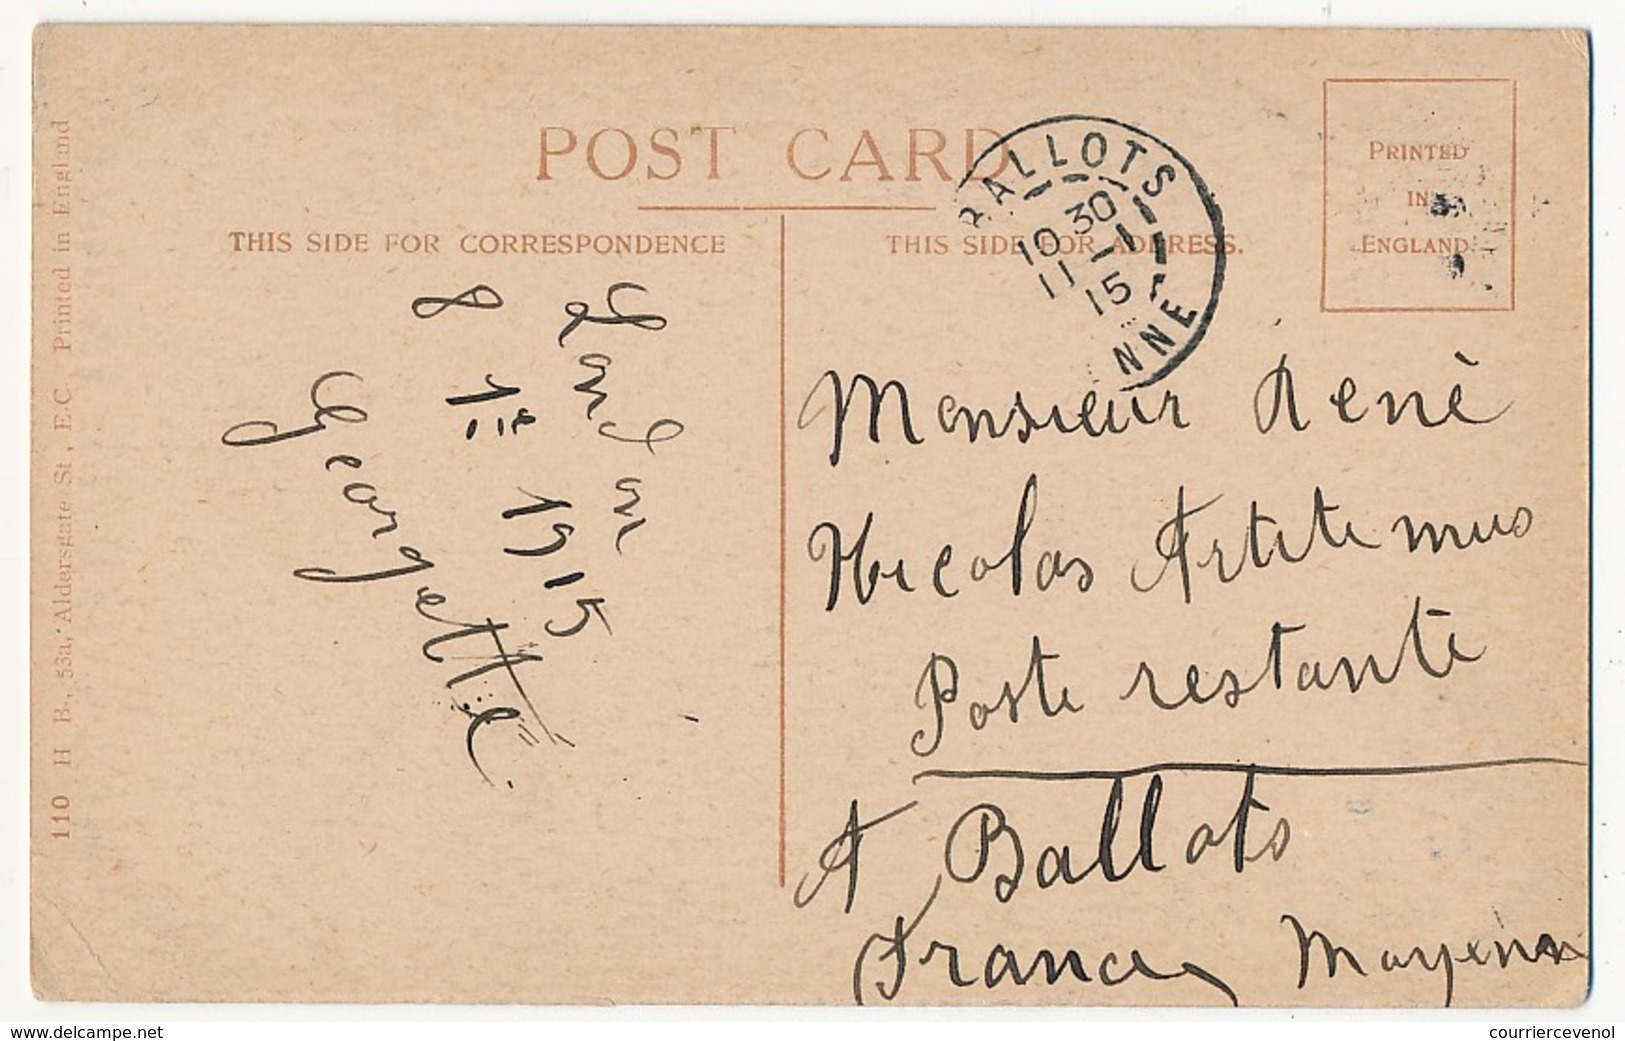 POST CARD
THIS SIDE FOR CORRESPONDENCE
THIS SIDE FOR ADDRESS.
PRINTED
IN
ENGLAND
BALLOTS
10 30
11 - 1
15
NNE
110 H B., 53a, Aldersgate St, E.C Printed in England
London
8 1er 1915
Georgette
Monsieur René
Nicolas Artitemus
Poste restante
A Ballots
France Mayenne
www.delcampe.net
courriercevenol